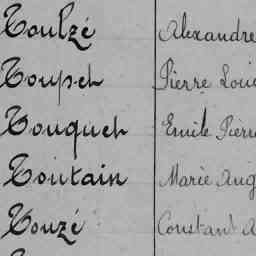 Toulzé Alexandre
Toupet Pierre Loui
Touquet Emile Pierr
Toutain Marie Aug
Touzé Constant A